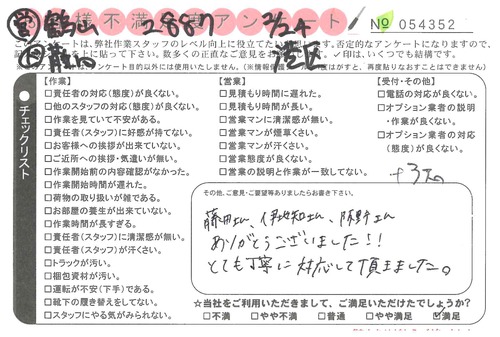 営 鶴山 2887 2/24
様不満 アンケート No 054352
港区
このアンケートは、弊社作業スタッフのレベル向上に役立て
チェックリスト
【作業】
□責任者の対応(態度)が良くない。
□他のスタッフの対応(態度)が良くない。
□作業を見ていて不安がある。
□責任者(スタッフ)に好感が持てない。
□お客様への挨拶が出来ていない。
□ご近所への挨拶・気遣いが無い。
□作業開始前の内容確認がなかった。
□作業開始時間が遅れた。
□荷物の取り扱いが雑である。
□お部屋の養生が出来ていない。
□作業時間が長すぎる。
□責任者(スタッフ)に清潔感が無い。
□責任者(スタッフ)が汗くさい。
□トラックが汚い。
□梱包資材が汚い。
□運転が不安(下手)である。
□靴下の履き替えをしてない。
□スタッフにやる気がみられない。
【営業】
□見積もり時間に遅れた。
□見積もり時間が長い。
□営業マンに清潔感が無い。
□営業マンが煙草くさい。
□営業マンが汗くさい。
□営業態度が良くない。
□営業の説明と作業が一致してない。
【受付・その他】
□電話の対応が良くない。
□オプション業者の説明
・作業が良くない。
□オプション業者の対応
(態度)が良くない。
+3点
その他、ご意見・ご要望等ありましたらお書き下さい。
藤田さん、伊知地さん、
ありがとうございました!!
とても丁寧に対応して頂きました。
☆当社をご利用いただきまして、ご満足いただけたでしょうか?
□不満 □やや不満 □普通 □やや満足 ☑満足